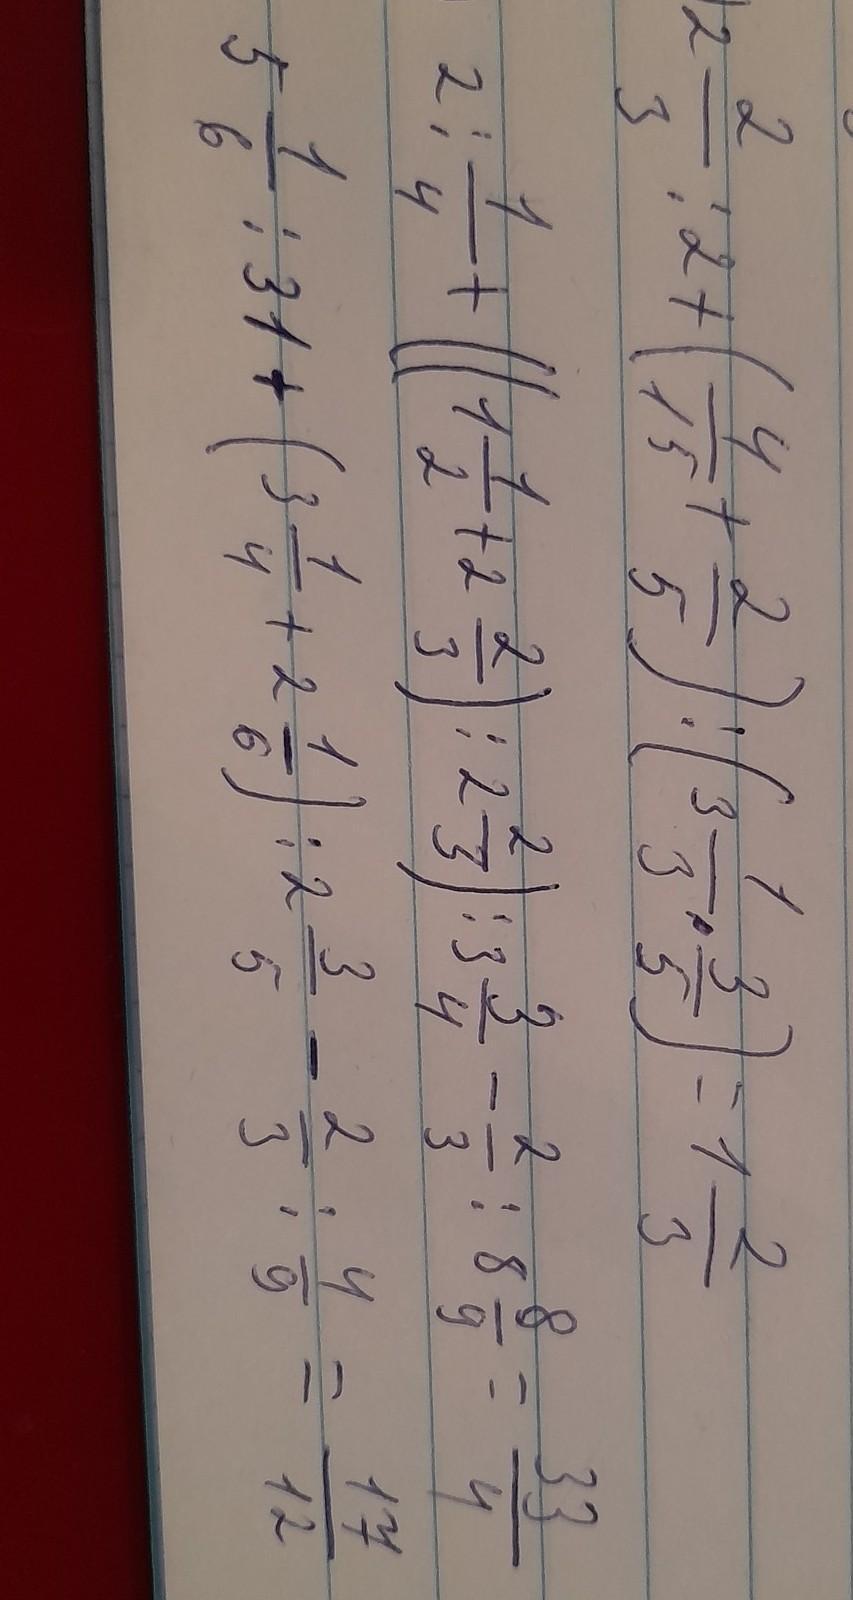 2 2/3 : 2 + (4/15 + 2/5) : (3 1/3 · 3/5) = 1 2/3
2 : 1/4 + ((1 1/2 + 2 2/3) : 2 2/3) : 3 3/4 - 2/3 : 8 8/9 = 33/4
5 1/6 : 31 + (3 1/4 + 2 1/6) : 2 3/5 - 2/3 : 4/9 = 17/12